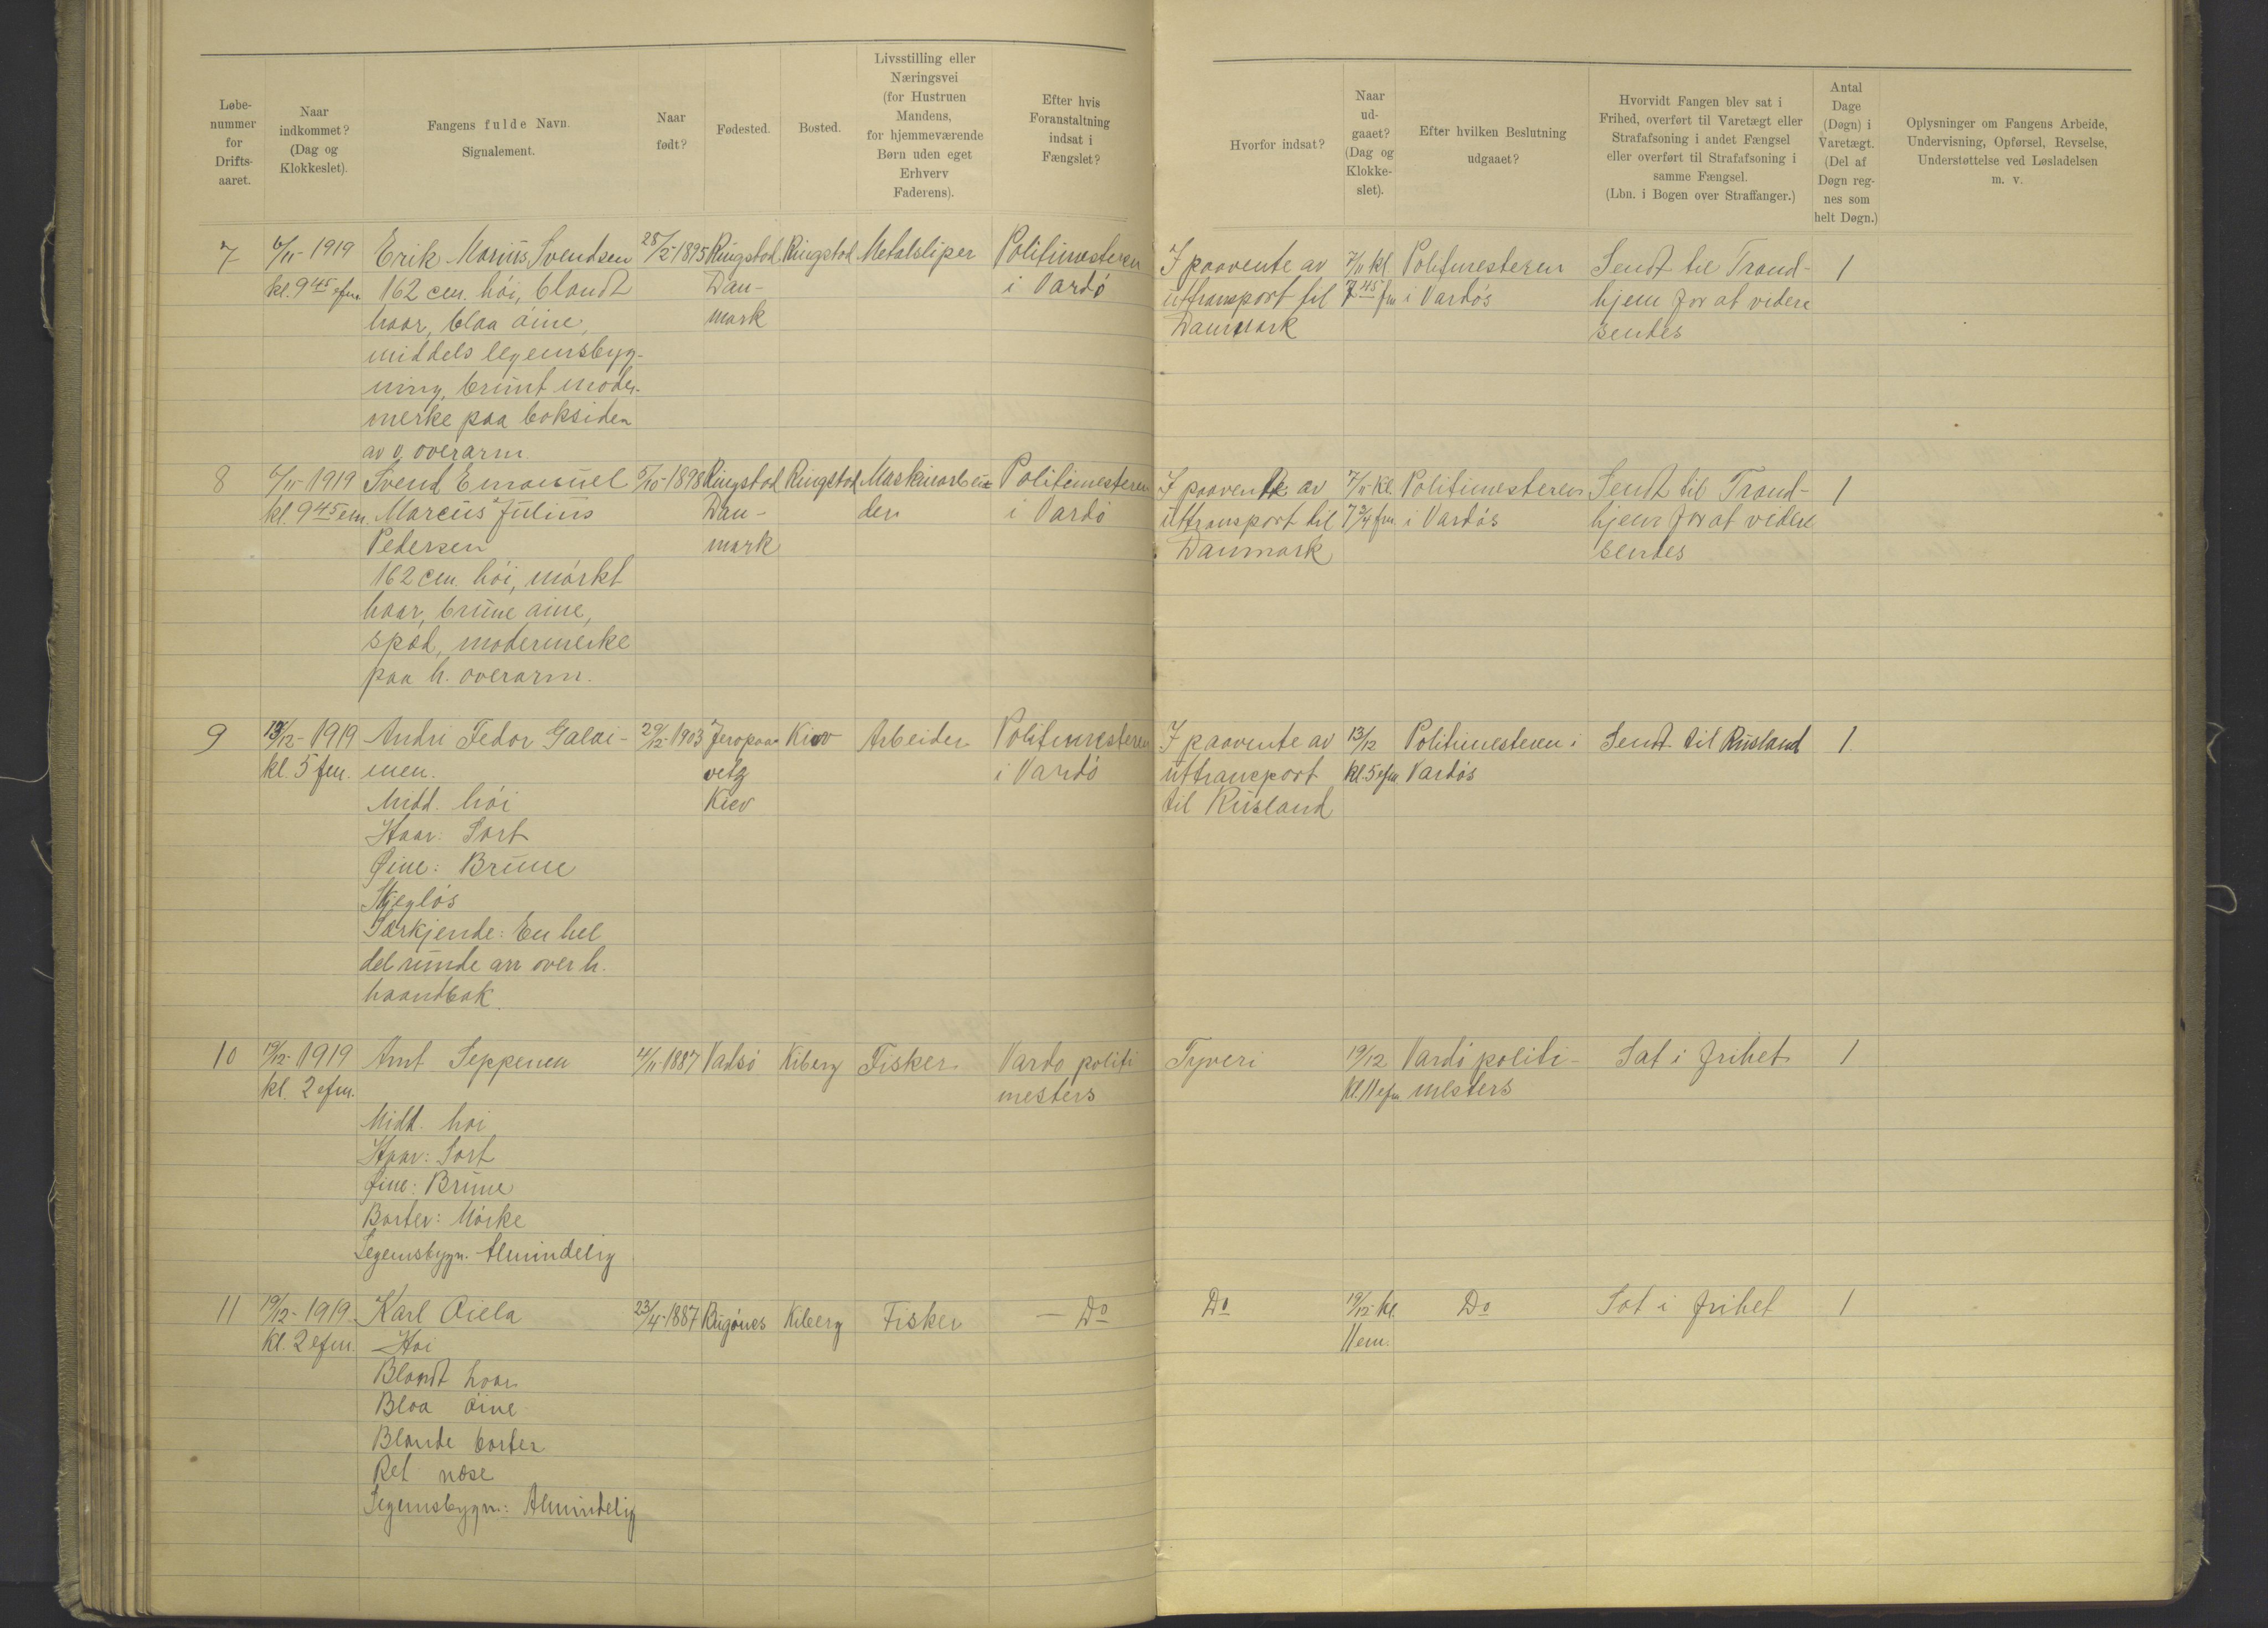 Løbe-
nummer
for
Drifts-
aaret.
Naar
indkommet?
(Dag og
Klokkeslet).
Fangens fulde Navn.
Signalement.
Naar
født?
Fødested.
Bosted.
Livsstilling eller
Næringsvei
(for Hustruen
Mandens,
for hjemmeværende
Børn uden eget
Erhverv
Faderens).
Efter hvis
Foranstaltning
indsat i
Fængslet?
Hvorfor indsat?
Naar
ud-
gaaet?
(Dag og
Klokke-
slet).
Efter hvilken Beslutning
udgaaet?
Hvorvidt Fangen blev sat i
Frihed, overført til Varetægt eller
Strafafsoning i andet Fængsel
eller overført til Strafafsoning i
samme Fængsel.
(Lbn. i Bogen over Straffanger.)
Antal
Dage
(Døgn) i
Varetægt.
(Del af
Døgn reg-
nes som
helt Døgn.)
Oplysninger om Fangens Arbeide,
Undervisning, Opførsel, Revselse,
Understøttelse ved Løsladelsen
m. v.
7 6/11-1919 Erik Marius Svendsen 28/2-1895 Ringstod Ringstod Metalsliper Politimesteren I paavente av 7/11 kl Politimesteren Sendt til Trond- 1
kl. 9 45 efm. 162 cm. høi, blondt Dan- i Vardø uttransport til 7 45 fm i Vardøs hjem for at videre
haar, blaa øine, mark Danmark sendes
middels legemsbyg-
ning, brunt moder-
merke paa baksiden
av v. overarm.
8 6/11-1919 Svend Emanuel 5/10-1898 Ringstod Ringstod Maskinarbei- Politimesteren I paavente av 7/11 kl. Politimesteren Sendt til Trond- 1
kl. 9 45 em. Marcus Julius Dan- der i Vardø uttransport til 7 3/4 fm. i Vardøs hjem for at videre
Pedersen mark Danmark sendes
162 cm. høi, mørkt
haar, brune øine,
spæd, modermerke
paa h. overarm.
9 13/12-1919 Andri Fedor Galai- 29/12-1903 Jeropaa- Kiev Arbeider Politimesteren I paavente av 13/12 Politimesteren i Sendt til Rusland 1.
kl. 5 fm. men. vetz i Vardø uttransport kl. 5 efm. Vardøs
Midd. høi Kiev til Rusland
Haar: Sort
Øine: Brune
Skjegløs
Særkjende: En hel
del runde arr over h.
haandbak
10 19/12-1919 Arnt Seppenen 4/11-1887 Vadsø Kiberg Fisker Vardø politi Tyveri 19/12 Vardø politi- Sat i frihet 1
kl. 2 efm. mesters kl. 11 efm mesters
Midd. høi
Haar: Sort
Øine: Brune
Barter: Mørke
Legemsbygn. Almindelig
11 19/12-1919 Karl Oiela 23/4-1887 Bugønes Kiberg Fisker — Do Do 19/12 kl. Do Sat i frihet 1
kl. 2 efm. Høi 11 em.
Blondt haar
Blaa øine
Blonde barter
Ret næse
Legemsbygn.: Almindelig